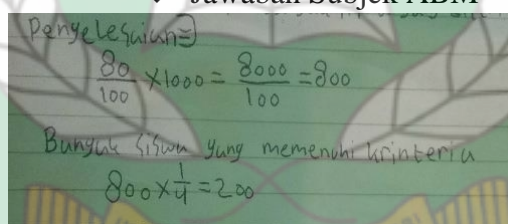 Jawaban Subjek ABM
Penyelesaian =)
80/100 × 1000 = 8000/100 = 800
Banyak siswa yang memenuhi krinteria
800 × 1/4 = 200